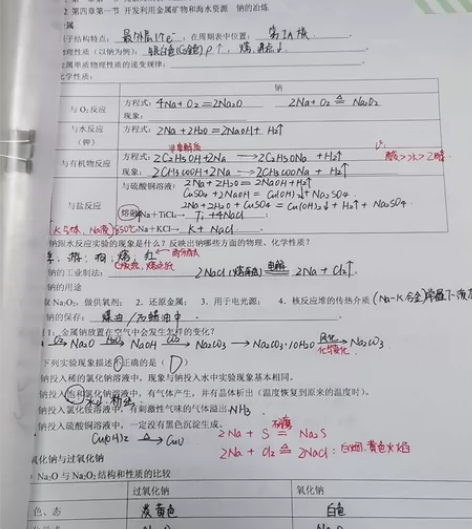 第四章第一节 开发利用金属矿物和海水资源 钠的冶炼
子结构特点: 最外层1个e⁻; 在周期表中位置: 第IA族
理性质(以钠为例): 银白色
属单质物理性质的递变规律:
学性质:
钠
与O₂反应
方程式: 4Na+O₂=2Na₂O 2Na+O₂ △ Na₂O₂
现象:
与水反应
(钾)
方程式: 2Na+2H₂O=2NaOH+H₂↑
与有机物反应
方程式: 2C₂H₅OH+2Na→2C₂H₅ONa+H₂↑
酸>水>乙醇
现象: 2CH₃COOH+2Na→2CH₃COONa+H₂↑
与盐反应
与硫酸铜溶液: 2Na+2H₂O=2NaOH+H₂↑
CuSO₄+2NaOH=Cu(OH)₂↓+Na₂SO₄
2Na+2H₂O+CuSO₄=Cu(OH)₂↓+H₂↑+Na₂SO₄
熔融 Na+TiCl₄→Ti+4NaCl
850℃Na+KCl→K+NaCl
钠跟水反应实验的现象是什么?反映出钠哪些方面的物理、化学性质?
钠的工业制法: 2NaCl(熔融) 电解 2Na+Cl₂↑
钠的用途
取Na₂O₂,做供氧剂; 2、还原金属; 3、用于电光源; 4、核反应堆的传热介质(Na-K合金)
钠的保存: 煤油/石蜡油中
金属钠放置在空气中会发生怎样的变化?
O₂ Na₂O H₂O NaOH CO₂ Na₂CO₃→Na₂CO₃·10H₂O 风化 Na₂CO₃
下列实验现象描述不正确的是(D)
钠投入稀的氯化钠溶液中,现象与钠投入水中实验现象基本相同。
钠投入饱和氯化钠溶液中,有气体产生,并有晶体析出(温度恢复到原来的温度时)。
钠投入氯化铵溶液中,有刺激性气味的气体逸出 NH₃
钠投入硫酸铜溶液中,一定没有黑色沉淀生成。
Cu(OH)₂ △ CuO
2Na+S = Na₂S
2Na+Cl₂ △ 2NaCl: 白烟,黄色火焰
氧化钠与过氧化钠
Na₂O与Na₂O₂结构和性质的比较
过氧化钠 氧化钠
色、态 淡黄色 白色